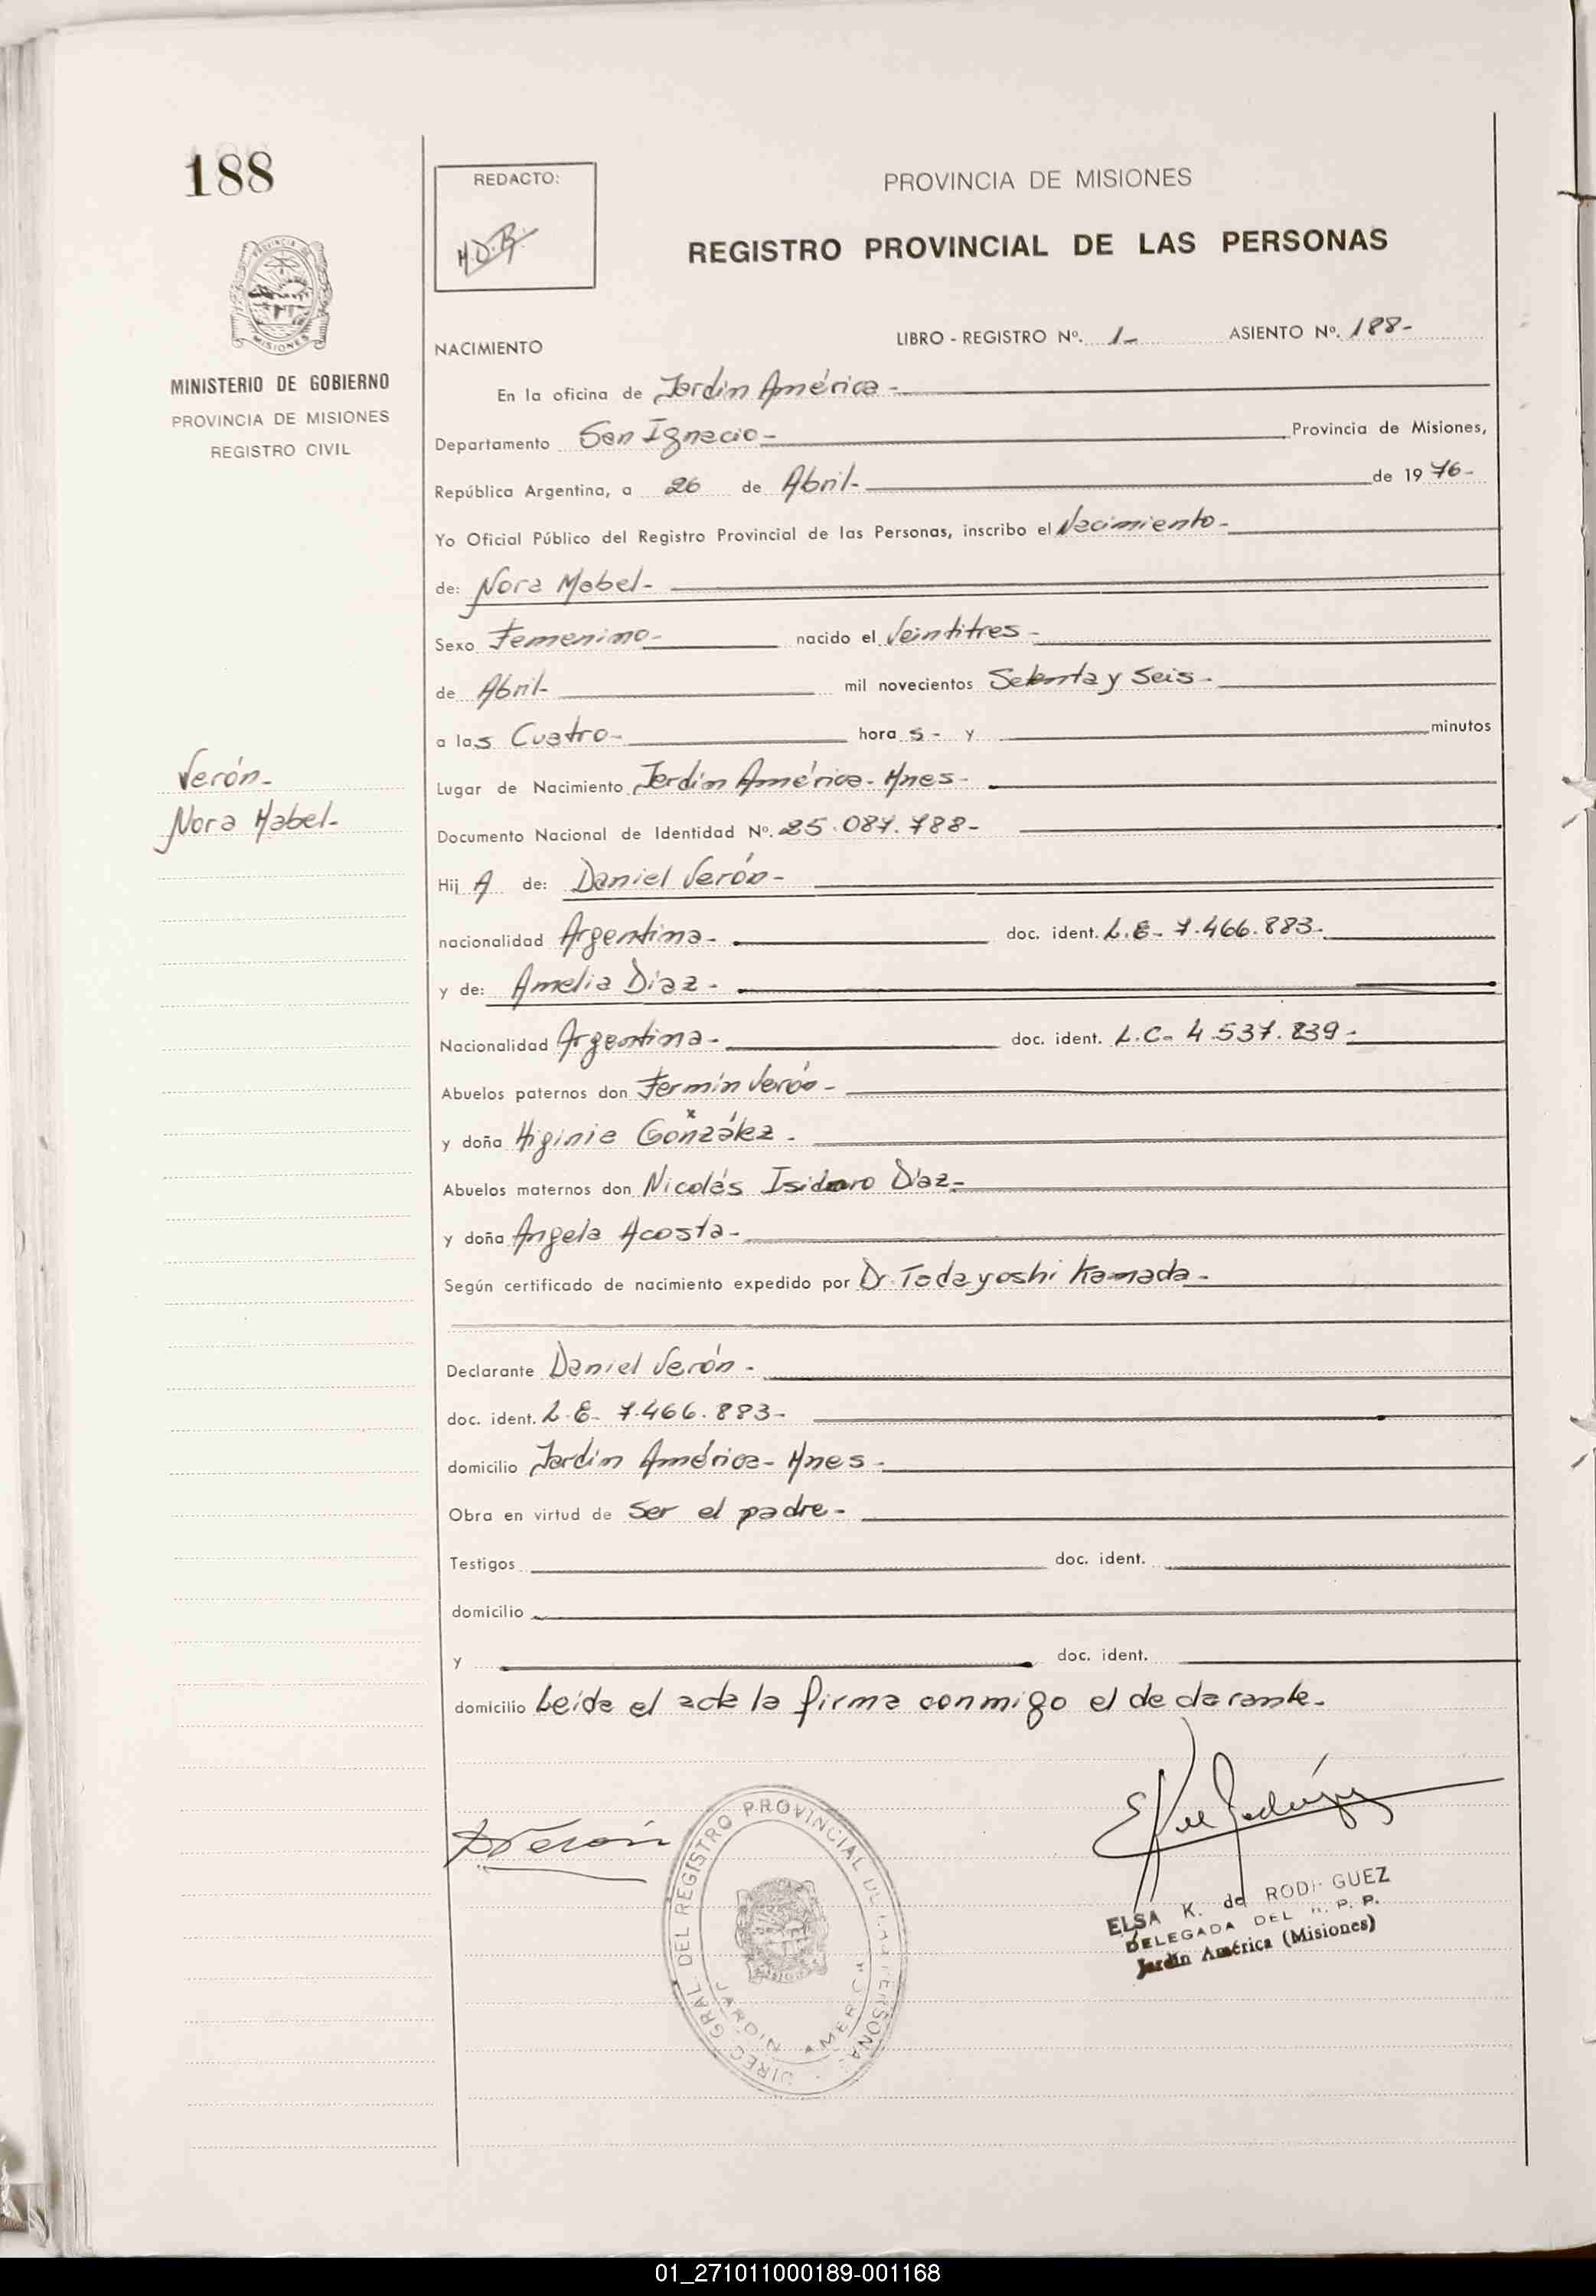 188
REDACTO:
PROVINCIA DE MISIONES
REGISTRO PROVINCIAL DE LAS PERSONAS
MISIONES
MINISTERIO DE GOBIERNO
PROVINCIA DE MISIONES
REGISTRO CIVIL
NACIMIENTO
LIBRO - REGISTRO Nº. 1- ASIENTO Nº. 188-
En la oficina de Jardín América -
Departamento San Ignacio - Provincia de Misiones,
República Argentina, a 26 de Abril- de 1976-
Yo Oficial Público del Registro Provincial de las Personas, inscribo el Nacimiento-
de: Nora Mabel-
Sexo Femenino- nacido el Veintitres -
de Abril- mil novecientos Setenta y Seis-
a las Cuatro- horas- y minutos
Verón-
Nora Mabel-
Lugar de Nacimiento Jardín América- Mnes-
Documento Nacional de Identidad Nº. 25.087.788-
Hija de: Daniel Verón-
nacionalidad Argentina- doc. ident. L.E- 7.466.883-
y de: Amelia Díaz -
Nacionalidad Argentina- doc. ident. L.C- 4.537.839-
Abuelos paternos don Fermín Verón-
y doña Higinie González -
Abuelos maternos don Nicolás Isidoro Díaz-
y doña Angela Acosta-
Según certificado de nacimiento expedido por Dr. Tadayoshi Kamada-
Declarante Daniel Verón -
doc. ident. L.E- 7.466.883-
domicilio Jardín América- Mnes-
Obra en virtud de Ser el padre-
Testigos doc. ident.
domicilio
y doc. ident.
domicilio Leída el acta la firma conmigo el declarante-
DVerón
DIREC. GRAL. DEL REGISTRO PROVINCIAL DE LAS PERSONAS
JARDIN AMERICA
ELSA K. de RODRIGUEZ
DELEGADA DEL R. P. P.
Jardín América (Misiones)
01_271011000189-001168